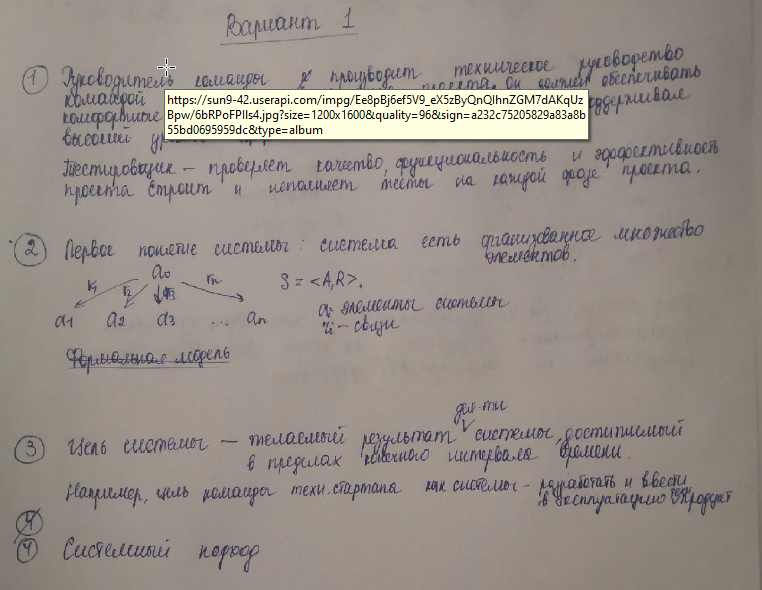 Вариант 1
1 Руководитель команды производит техническое руководство
командой проекта. Он должен обеспечивать
комфортные
https://sun9-42.userapi.com/impg/Ee8pBj6ef5V9_eX5zByQnQlhnZGM7dAKqUz
Bpw/6bRPoFPlls4.jpg?size=1200x1600&quality=96&sign=a232c75205829a83a8b
55bd0695959dc&type=album
высший
Тестировщик – проверяет качество, функциональность и эффективность
проекта Строит и исполняет тесты на каждой фазе проекта.
2 Первое понятие системы: система есть организованное множество
элементов.
a0 S = <A,R>.
r1 r2 r3 rn
a1 a2 a3 ... an
ai элементы системы
ri – связи
Формальная модель
дея-ти
3 Цель системы – желаемый результат системы, достижимый
в пределах конечного интервала времени.
Например, цель команды техн. стартапа как системы – разработать и ввести
в эксплуатацию продукт
4
4 Системный подход